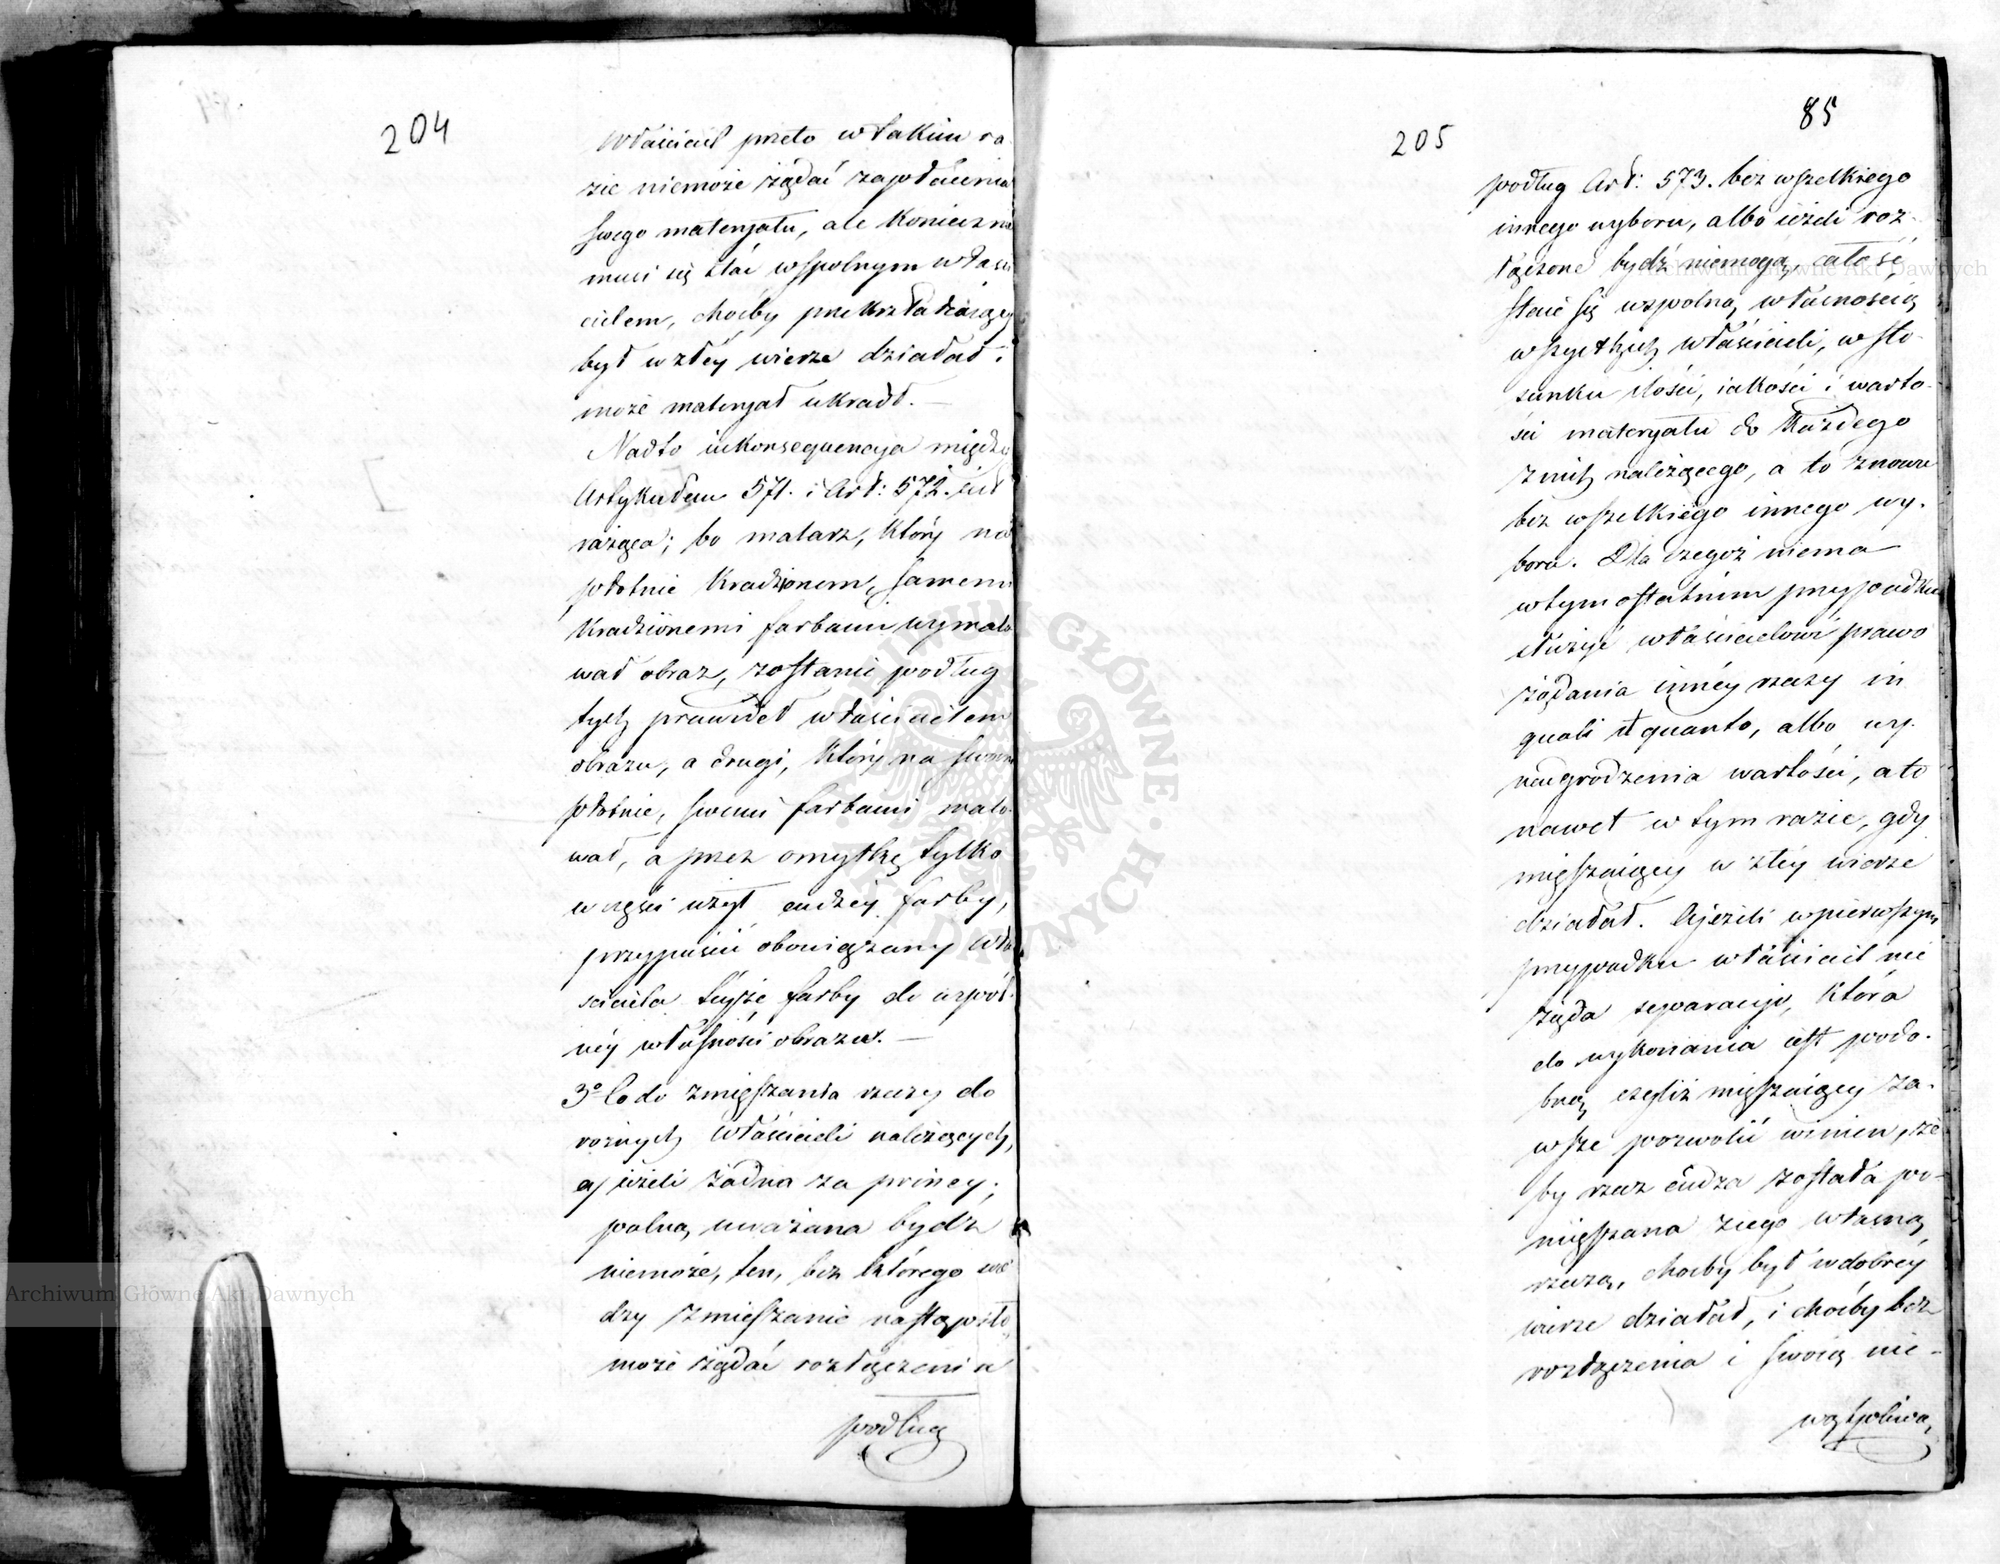 204
Właściciel przeto w takim ra-
zie niemoże żądać zapłacenia
swego materyału, ale koniecznie
musi się stać wspolnym właści
cielem, choćby przekształcaiący
był w złéy wierze działał i
może materyał ukradł. —
Nadto inkonsequencya między
Artykułem 571. i Art: 572. iest
rażąca; bo malarz, który na
płótnie kradzionem, samemi
kradzionemi farbami wymalo
wał obraz, zostanie podług
tych prawideł właścicielem
obrazu, a drugi, który na swoim
płótnie, swemi farbami malo-
wał, a przez omyłkę tylko
w części użył cudzéy farby,
przypuścić obowiązany wła
ściciela teyże farby do wspól-
néy własności obrazu. —
3º Co do zmięszania rzeczy do
rożnych właścicieli należących,
a/ ieżeli żadna za princy-
palną uważana bydź
niemoże, ten, bez którego wie
dzy zmięszanie nastąpiło,
może żądać rozłączenia
podług
85
205
podług Art: 573. bez wszelkiego
innego wyboru, albo ieżeli roz-
łączone bydź niemogą, całość
staie się wspolną własnością
wszystkich właścicieli, w sto-
sunku ilości, iakości i warto-
ści materyału do każdego
z nich należącego, a to znowu
bez wszelkiego innego wy-
boru. Dla czegoż niema
w tym ostatnim przypadku
służyć właścicielowi prawo
żądania innéy rzeczy in
quali et quanto, albo wy-
nadgrodzenia wartości, a to
nawet w tym razie, gdy
mięszaiący w złéy wierze
działał. A jeżeli w pierwszym
przypadku właściciel nie
żąda separacyi, która
do wykonania iest podo-
bną, czyliż mięszaiący za-
wsze pozwolić winien, że
by rzecz cudza została po-
mięszana z iego własną
rzeczą, choćby był w dobréy
wierze działał, i choćby bez
rozłączenia i swoią nie-
wątpliwą
Archiwum Główne Akt Dawnych
Archiwum Główne Akt Dawnych
ARCHIWUM GŁÓWNE AKT DAWNYCH